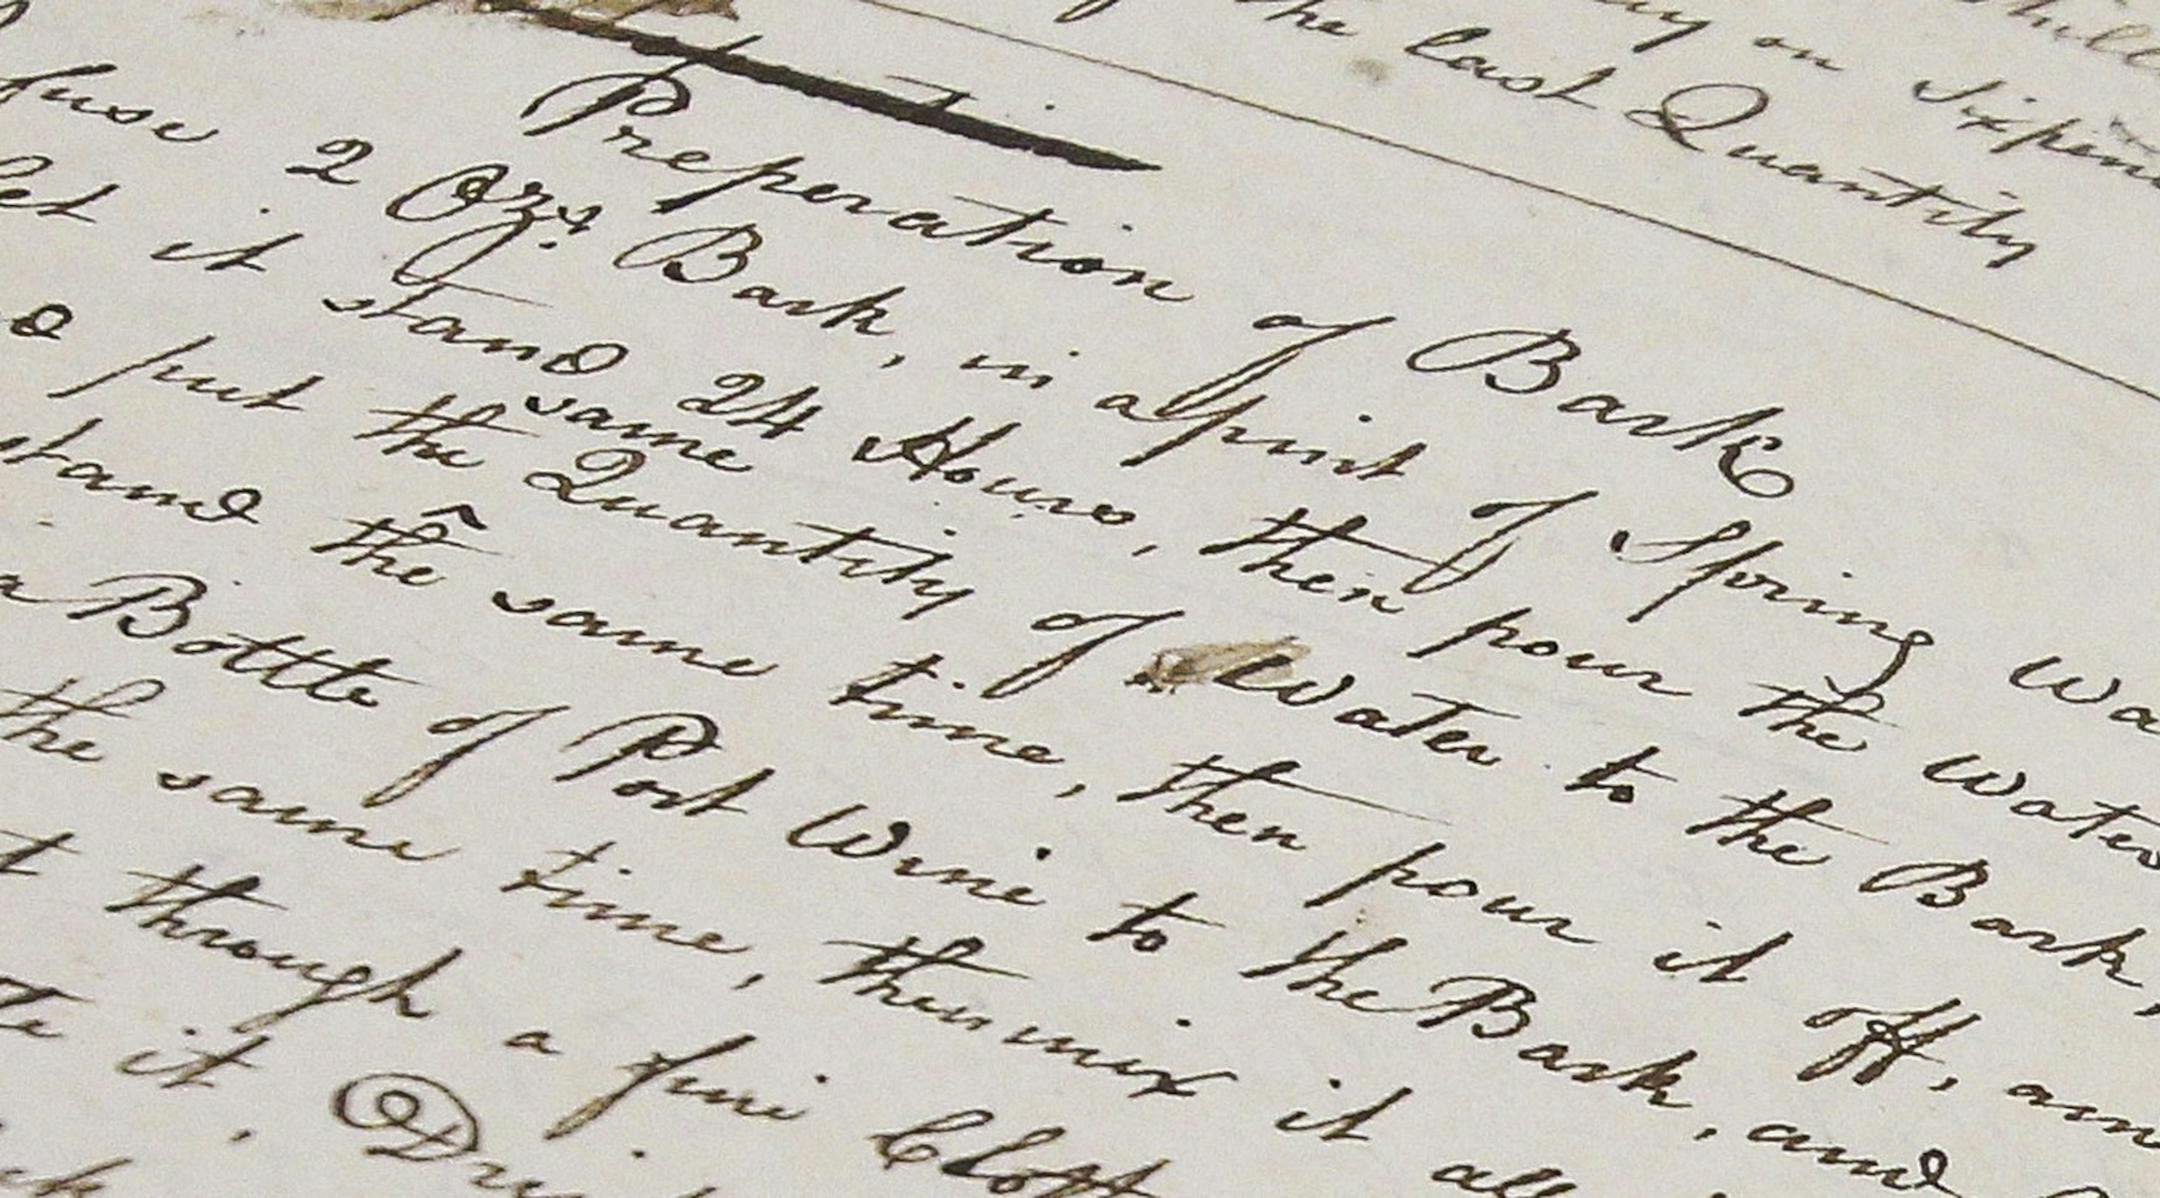 on Sixpen
the last Quantity
Preperation of Bark
fuse 2 Ozs. Bark, in a pint of Spring Wa
let it stand 24 Hours, then pour the Water
same
put the Quantity of Water to the Bark,
stand the same time, then pour it off, an
a Bottle of Port Wine to the Bark, and
the same time, then mix it all
t through a fine Cloth
it. Dri